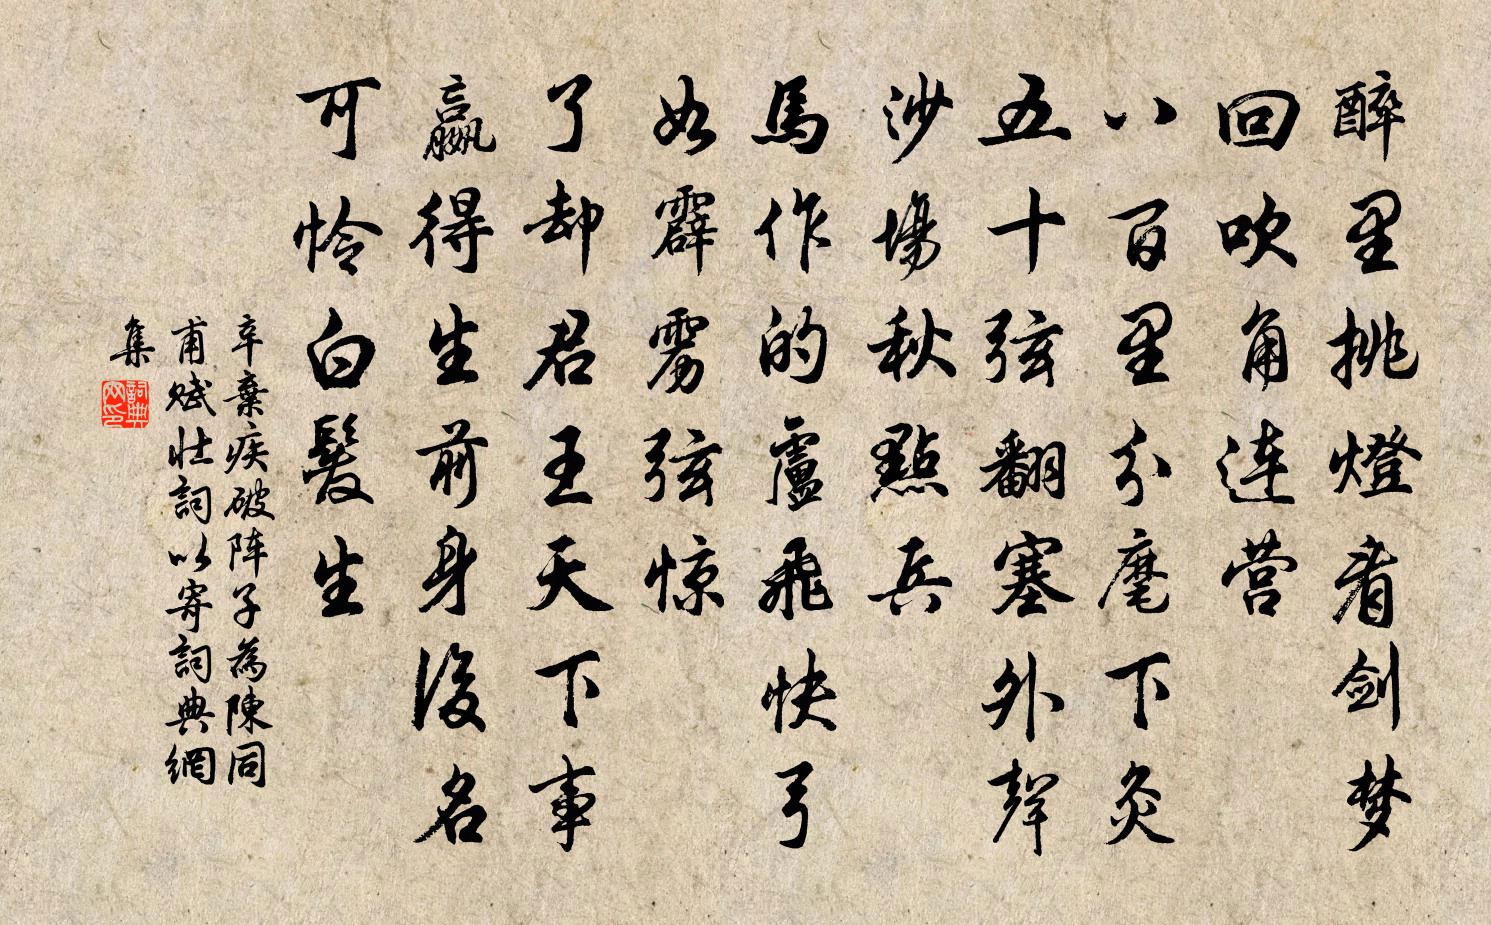 醉里挑燈看剑梦
回吹角连营
八百里分麾下灸
五十弦翻塞外聲
沙場秋點兵
馬作的盧飛快弓
如霹雳弦惊
了却君王天下事
赢得生前身後名
可怜白髮生
辛棄疾破阵子為陳同
甫赋壮詞以寄詞典網
集
詞典
网印